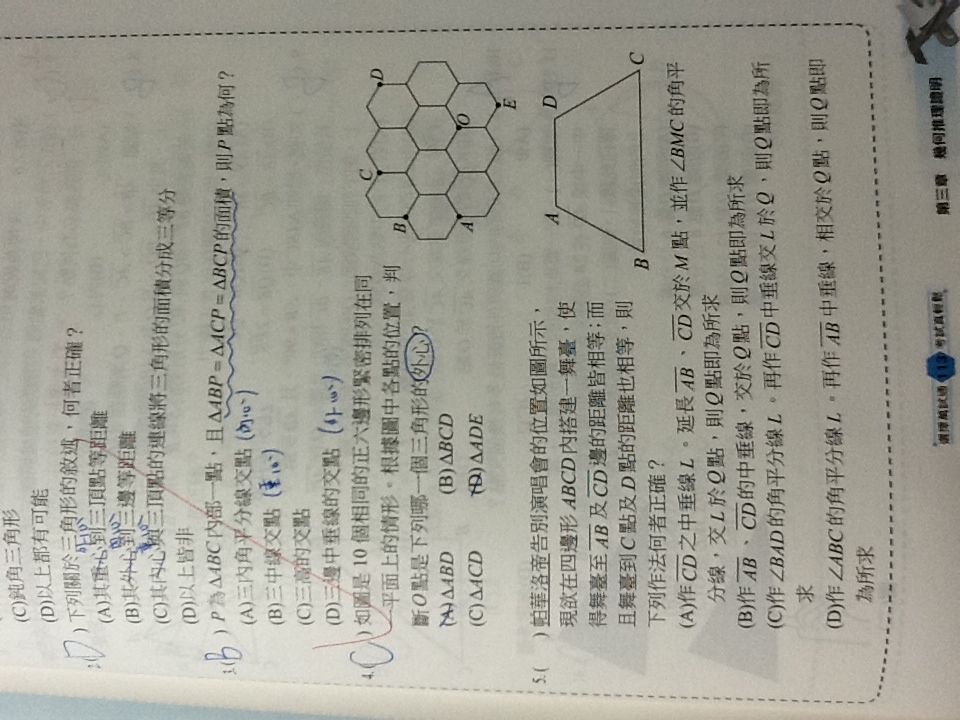 (C)鈍角三角形
(D)以上都有可能
2.(D)下列關於三角形的敘述，何者正確？
(A)其重心到三頂點等距離
(B)其外心到三邊等距離
(C)其內心與三頂點的連線將三角形的面積分成三等分
(D)以上皆非
3.(B)P為△ABC內部一點，且△ABP＝△ACP＝△BCP的面積，則P點為何？
(A)三內角平分線交點(內心)
(B)三中線交點(重心)
(C)三高的交點
(D)三邊中垂線的交點(外心)
4.(C)如圖是10個相同的正六邊形緊密排列在同
一平面上的情形。根據圖中各點的位置，判
斷O點是下列哪一個三角形的外心？
(A)△ABD (B)△BCD
(C)△ACD (D)△ADE
A B C D E O
5.( )帕華洛帝告別演唱會的位置如圖所示，
現欲在四邊形ABCD內搭建一舞臺，使
得舞臺至AB及CD邊的距離皆相等；而
且舞臺到C點及D點的距離也相等，則
下列作法何者正確？
A D
B C
(A)作CD之中垂線L。延長AB、CD交於M點，並作∠BMC的角平
分線，交L於Q點，則Q點即為所求
(B)作AB、CD的中垂線，交於Q點，則Q點即為所求
(C)作∠BAD的角平分線L。再作CD中垂線交L於Q，則Q點即為所
求
(D)作∠ABC的角平分線L。再作AB中垂線，相交於Q點，則Q點即
為所求
選擇萬試通 113 考試真輕鬆
第三章 幾何推理證明